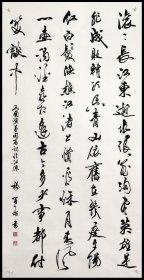 滚滚長江東逝水浪花淘盡英雄是
非成敗轉頭空青山依舊在幾度夕陽
紅白髮漁樵江渚上慣看秋月春風
一壺濁酒喜相逢古今多少事都付
笑談中